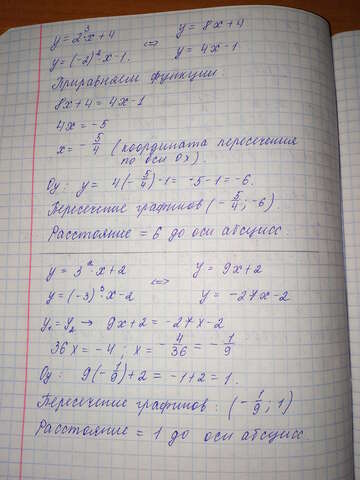 y = 2³·x + 4 <=> y = 8x + 4
y = (-2)²x - 1. y = 4x - 1
Приравняем функции
8x + 4 = 4x - 1
4x = -5
x = -5/4 (координата пересечения
по оси Ox).
Oy: y = 4(-5/4) - 1 = -5 - 1 = -6.
Пересечение графиков (-5/4; -6)
Расстояние = 6 до оси абсцисс
y = 3²·x + 2 <=> y = 9x + 2
y = (-3)³·x - 2 y = -27x - 2
y₁ = y₂ → 9x + 2 = -27x - 2
36x = -4; x = -4/36 = -1/9
Oy: 9(-1/9) + 2 = -1 + 2 = 1.
Пересечение графиков: (-1/9; 1)
Расстояние = 1 до оси абсцисс.